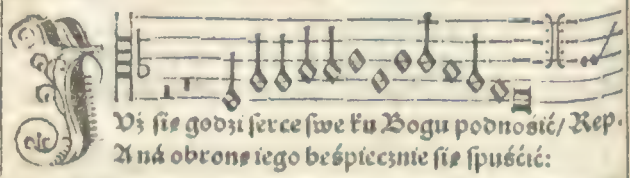 JVż się godzi serce swe ku Bogu podnosić/ Rep.
A ná obronę iego beśpiecznie się spuśćić: